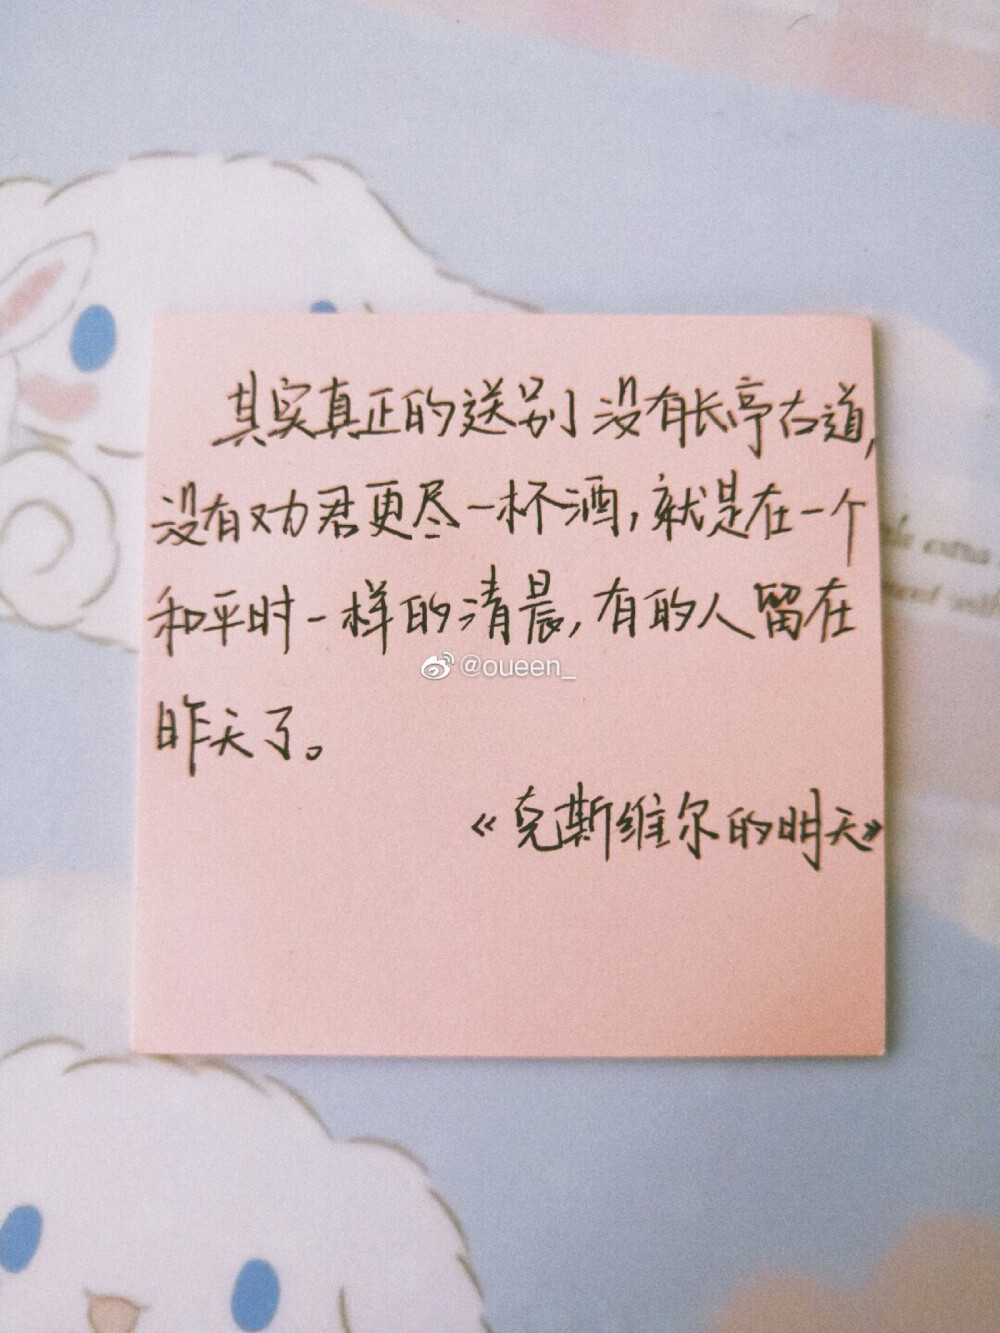 其实真正的送别没有长亭古道,
没有劝君更尽一杯酒,就是在一个
和平时一样的清晨,有的人留在
昨天了。
@oueen_
《克斯维尔的明天》